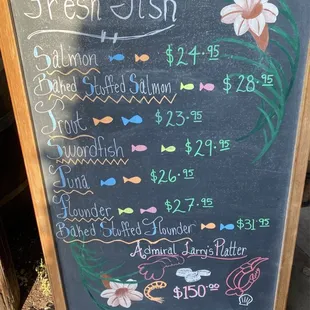 Fresh Fish
Salmon $24.95
Baked Stuffed Salmon $28.95
Trout $23.95
Swordfish $29.95
Tuna $26.95
Flounder $27.95
Baked Stuffed Flounder $31.95
Admiral Larry's Platter
$150.00